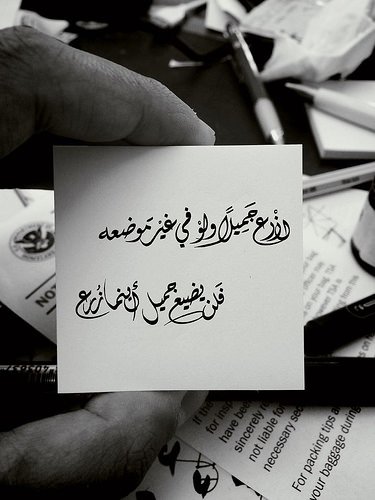 ازْرع جَميلًا ولوْ في غيْر مَوضعه
فَلن يضيع جميل أينما زُرع
NOT
If the
for insp
have bee
sincerely r
not liable for
necessary sec
For packing tips a
your baggage during